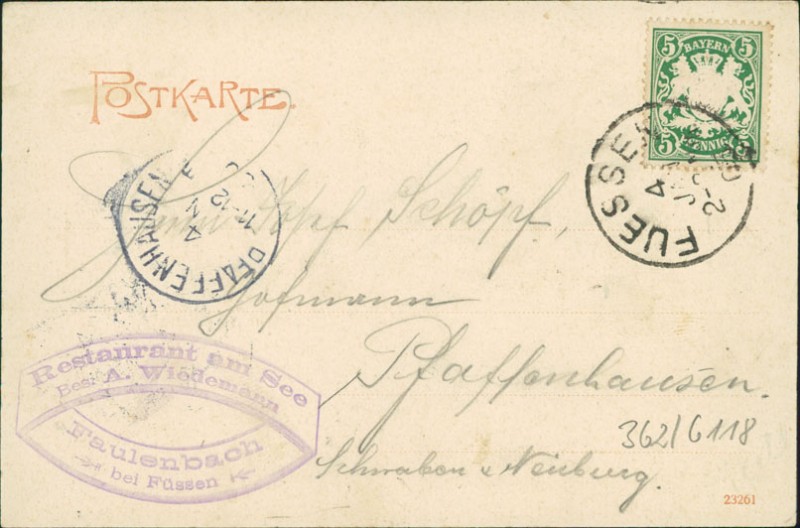 POSTKARTE.
5 BAYERN 5
5 PFENNIG 5
FUESSEN
PFAFFENHAUSEN
11-12 V
4
Herrn Josef Schöpf,
Hofmann
Pfaffenhausen.
Schwaben u Neuburg.
Restaurant am See
Bes: A. Wiedemann
Faulenbach
bei Füssen
362/6118
23261